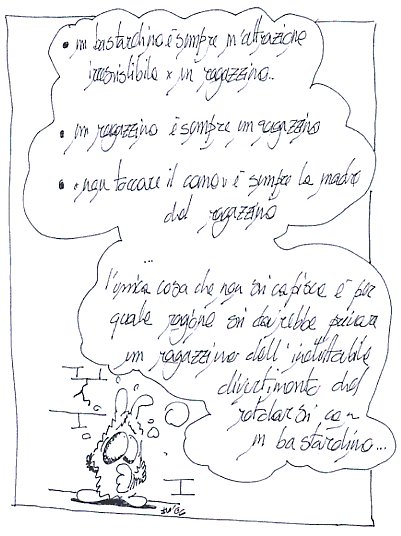 • un bastardino è sempre un'attrazione
irresistibile x un ragazzino..
• un ragazzino è sempre un ragazzino
• "non toccare il cane" è sempre la madre
del ragazzino
...
l'unica cosa che non si capisce è per
quale ragione si dovrebbe privare
un ragazzino dell'inevitabile
divertimento del
rotolarsi con
un bastardino...